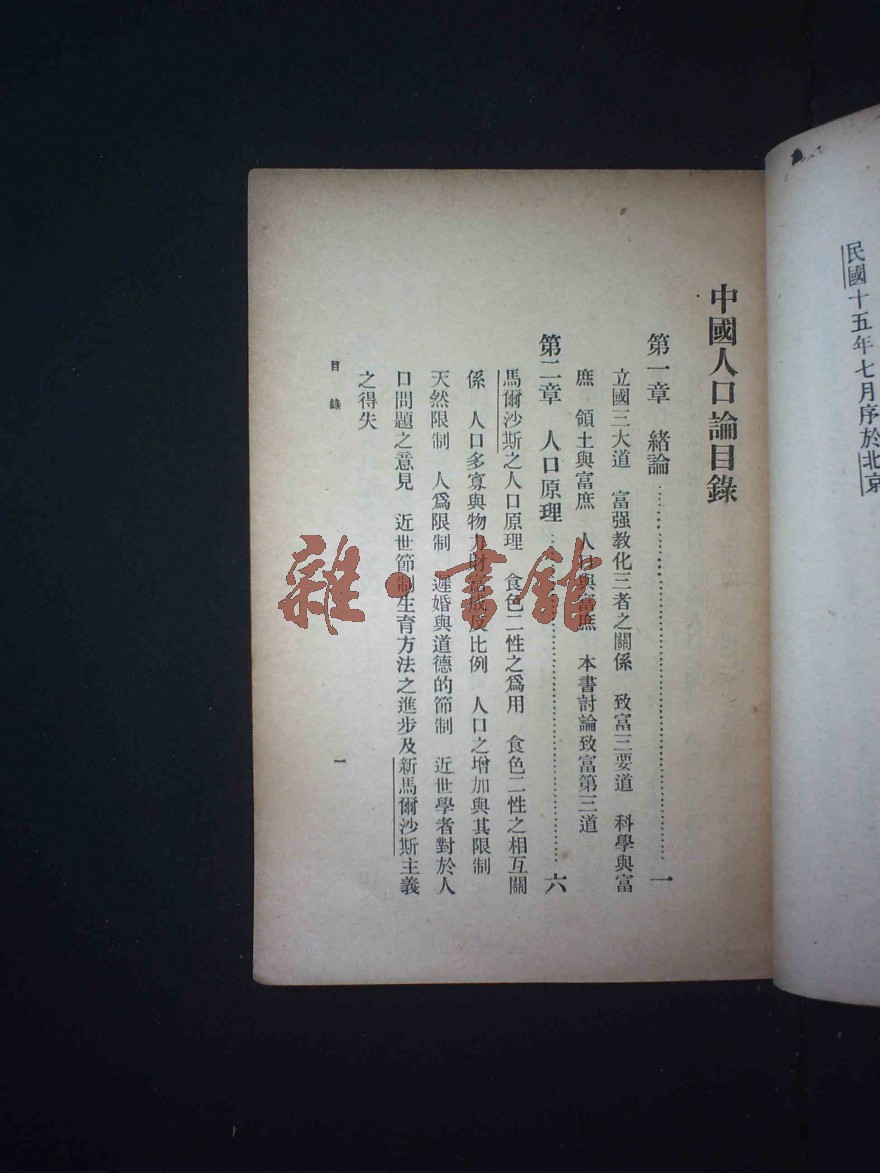 民國十五年七月序於北京
中國人口論目錄
第一章　緒論……………………一
立國三大道　富强教化三者之關係　致富三要道　科學與富
庶　領土與富庶　人口與富庶　本書討論致富第三道
第二章　人口原理……………………六
馬爾沙斯之人口原理　食色二性之爲用　食色二性之相互關
係　人口多寡與物力財富成反比例　人口之增加與其限制
天然限制　人爲限制　遲婚與道德的節制　近世學者對於人
口問題之意見　近世節制生育方法之進步及新馬爾沙斯主義
之得失
目錄
一
雜·書館